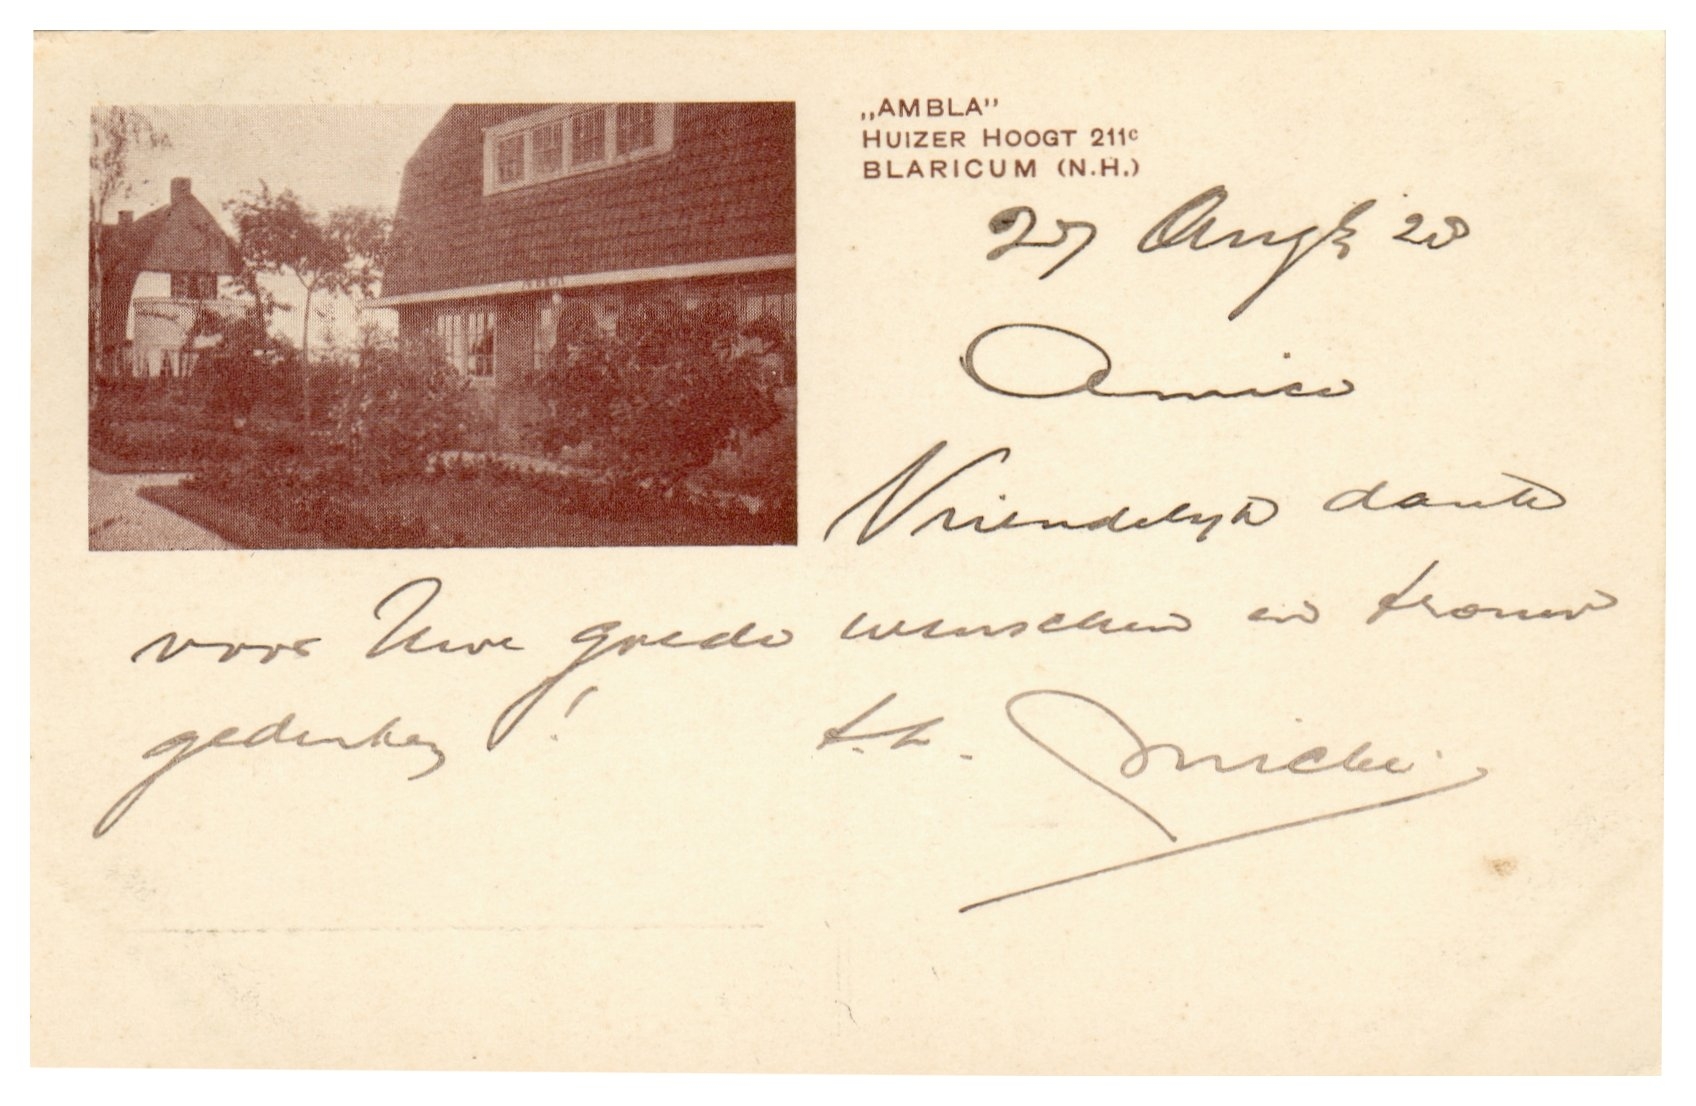 „AMBLA”
HUIZER HOOGT 211c
BLARICUM (N.H.)
27 Aug 28
Amice
Vriendelijk dank
voor Uwe goede wenschen en trouw
gedenken!
t.t.